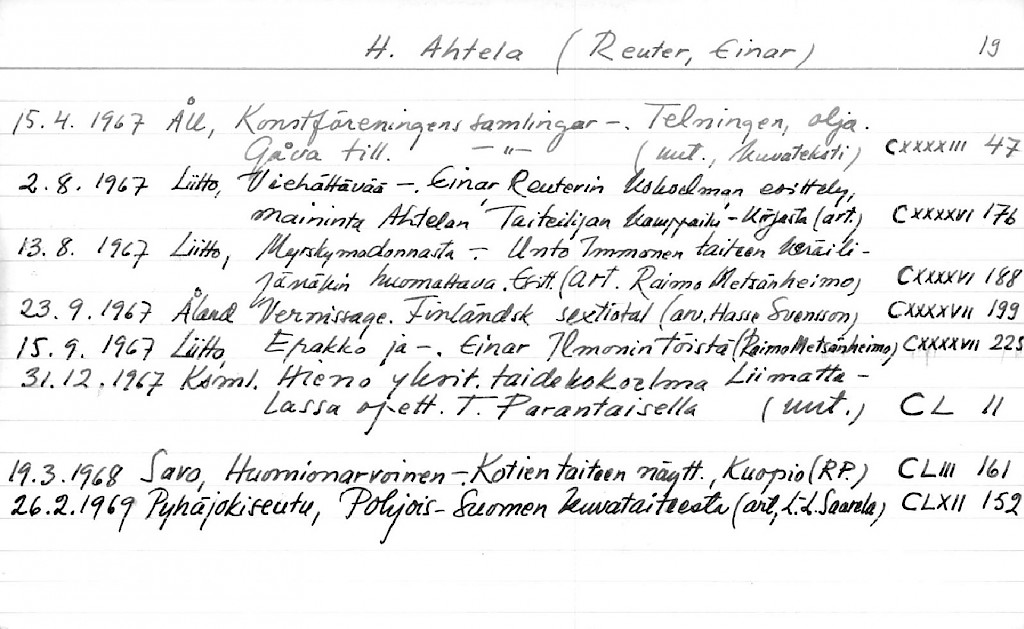 H. Ahtela (Reuter, Einar) 19
15.4.1967 Ål, Konstföreningens samlingar –. Telningen, olja.
Gåva till. –"– (uut., kuvateksti) CXXXXIII 47
2.8.1967 Liitto, Viehättävää –. Einar Reuterin kokoelman esittely,
maininta Ahtelan Taiteilijan kamppailu -kirjasta (art.) CXXXXVI 176
13.8.1967 Liitto, Myrskymadonnasta – Unto Immonen taiteen keräili-
jänäkin huomattava. Esitt. (art. Raimo Metsänheimo) CXXXXVI 188
23.9.1967 Åland Vernissage. Finländsk sextiotal (arv. Hasse Svensson) CXXXXVII 199
15.9.1967 Liitto, Epakko ja –. Einar Ilmonin töistä (Raimo Metsänheimo) CXXXXVII 225
31.12.1967 Ksml. Hieno yksit. taidekokoelma Liimatta-
lassa op ett. T. Parantaisella (uut.) CL 11
19.3.1968 Savo, Huomionarvoinen –. Kotien taiteen näytt., Kuopio (R.P.) CLIII 161
26.2.1969 Pyhäjokiseutu, Pohjois-Suomen kuvataiteesta (art, L. L. Saarela) CLXII 152